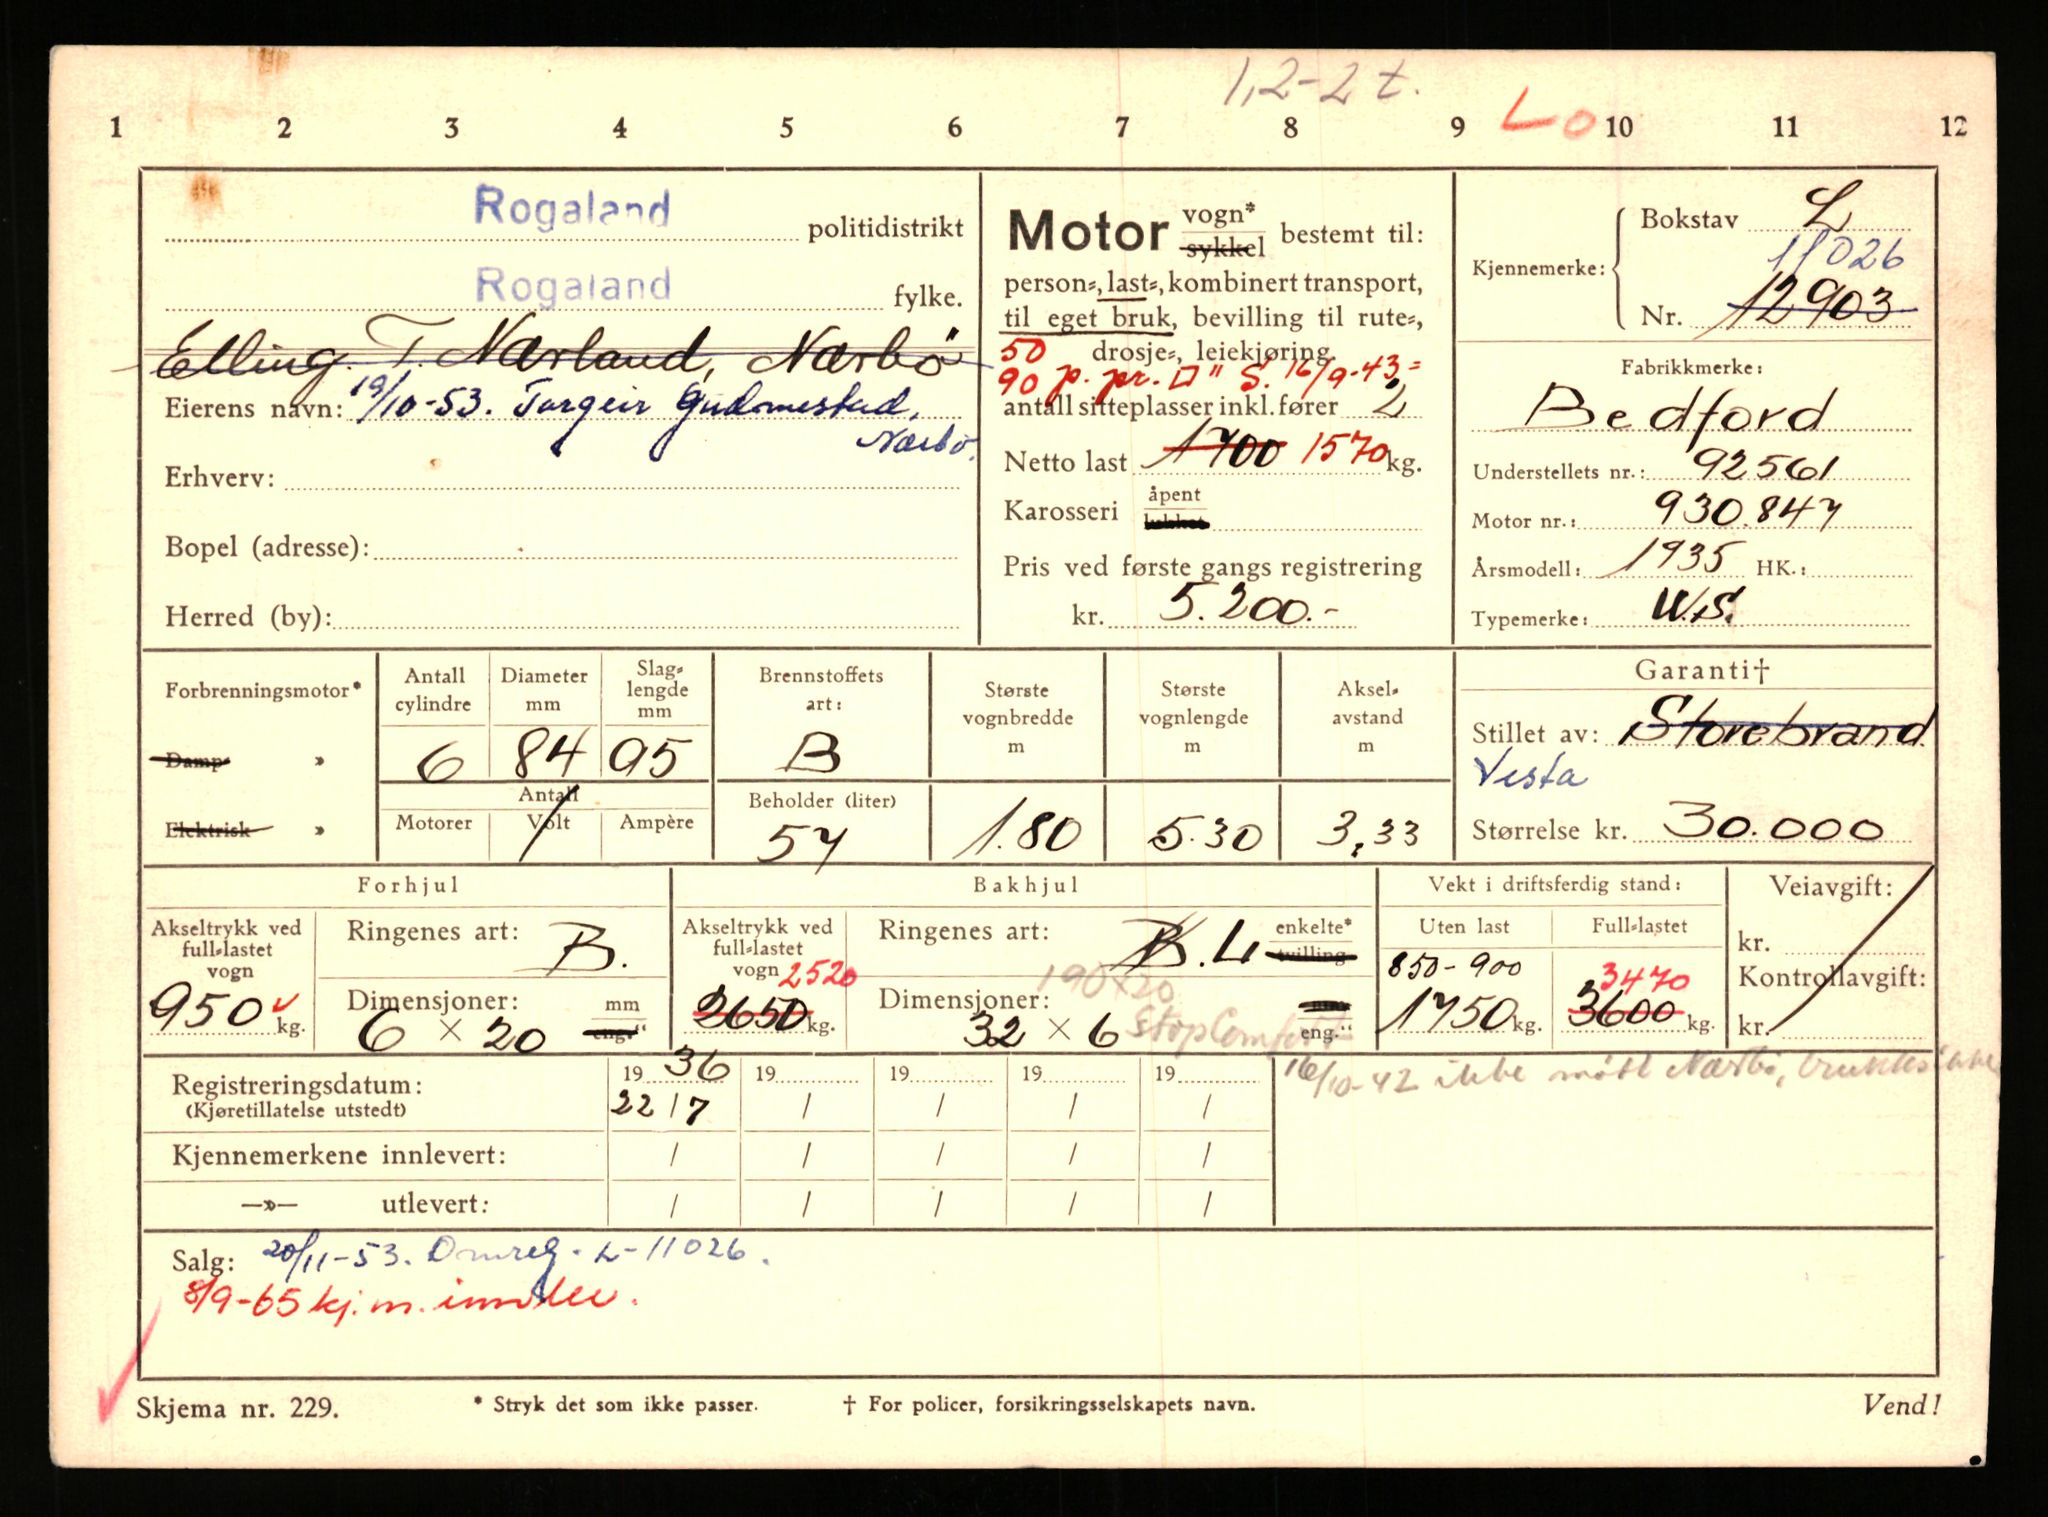 1,2-2 t.
1 2 3 4 5 6 7 8 9 Lo 10 11 12
Rogaland politidistrikt
Rogaland fylke.
Elling T. Nærland, Nærbö
Eierens navn: 19/10-53. Torgeir Gudmestad,
Nærbö.
Erhverv:
Bopel (adresse):
Herred (by):
Motor vogn* sykkel bestemt til:
person-, last-, kombinert transport,
til eget bruk, bevilling til rute-,
50 drosje-, leiekjøring.
90 p. pr. □" S. 16/9-43 =
antall sitteplasser inkl. fører 2
Netto last 1700 1570 kg.
Karosseri åpent
Pris ved første gangs registrering
kr. 5.200.-
Kjennemerke: Bokstav L
11026
Nr. 12903
Fabrikkmerke:
Bedford
Understellets nr.: 92561
Motor nr.: 930.847
Årsmodell: 1935 HK.:
Typemerke: W.S.
Forbrenningsmotor*
Damp »
Elektrisk »
Antall cylindre
Diameter mm
Slag-lengde mm
6 84 95
Antall
Motorer Volt Ampère
Brennstoffets art:
B
Beholder (liter)
57
Største vognbredde m
1.80
Største vognlengde m
5.30
Aksel-avstand m
3,33
Garanti†
Stillet av: Storebrand
Vesta
Størrelse kr. 30.000
Forhjul
Akseltrykk ved full-lastet vogn
950 kg.
Ringenes art: B.
Dimensjoner: mm
6 × 20 eng."
Bakhjul
Akseltrykk ved full-lastet vogn 2520
2650 kg.
Ringenes art: B. L enkelte* tvilling
190×20
Dimensjoner:
32 × 6 Stop Comfort eng."
Vekt i driftsferdig stand:
Uten last Full-lastet
850-900 3470
1750 kg. 3600 kg.
Veiavgift:
kr.
Kontrollavgift:
kr.
Registreringsdatum: 19 36 19 19 19 19
(Kjøretillatelse utstedt) 22/7 / / / /
16/10-42 ikke møtt Nærbö, bruktes ikke
Kjennemerkene innlevert: / / / / /
—»— utlevert: / / / / /
Salg: 20/11-53. Omreg. L-11026.
8/9-65 kj.m. innlev.
Skjema nr. 229. * Stryk det som ikke passer. † For policer, forsikringsselskapets navn. Vend!